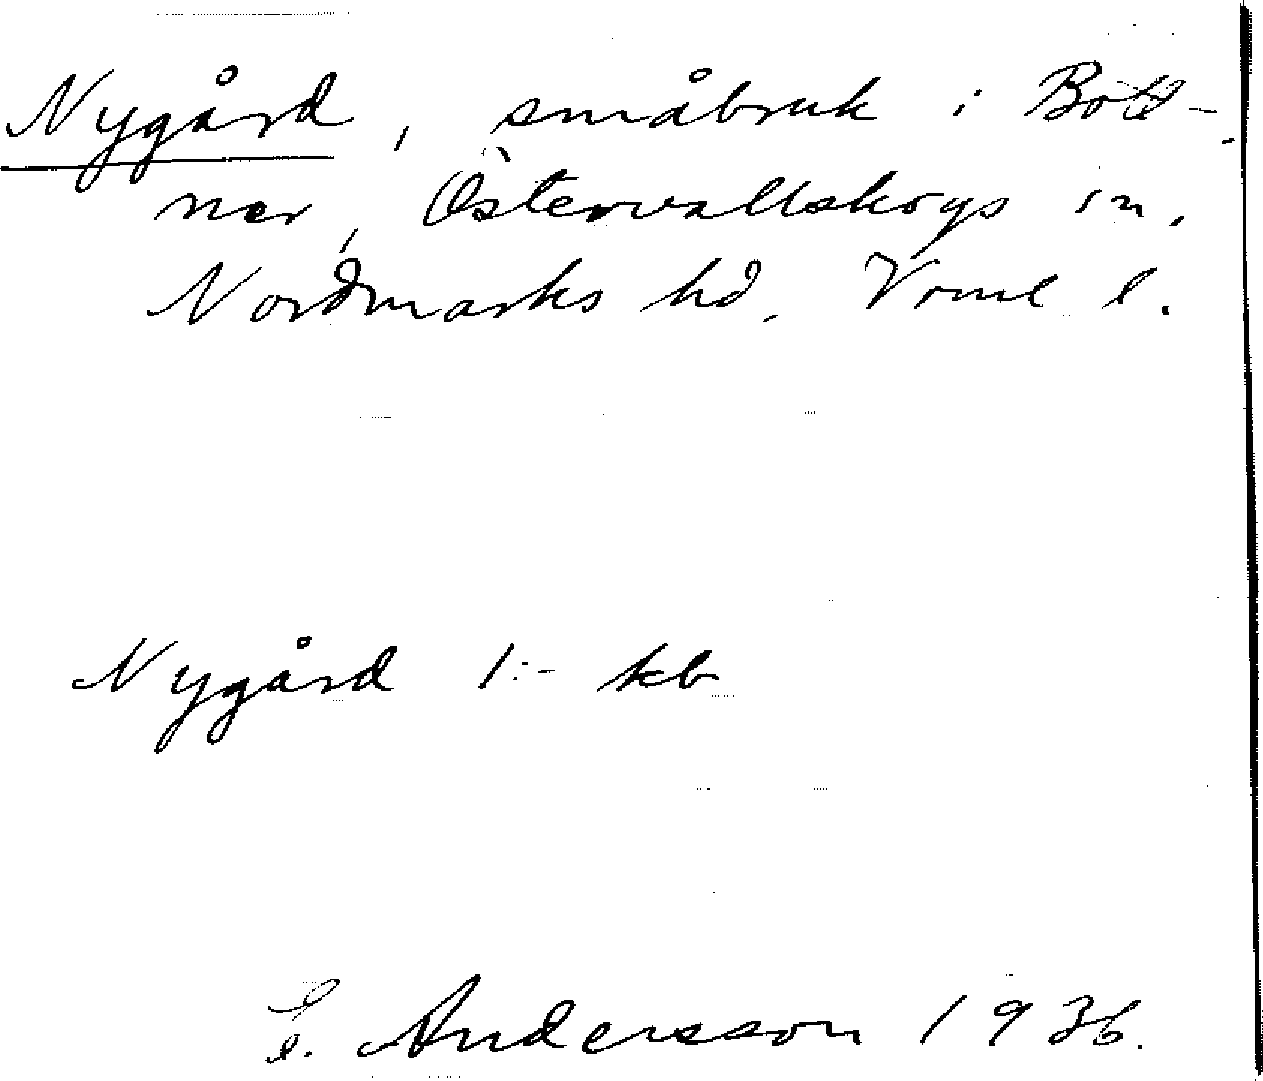 Nygård, småbruk i Bött-
ner, Östervallskogs sn,
Nordmarks hd. Vrml l.
Nygård 1:- kb
E. Andersson 1936.